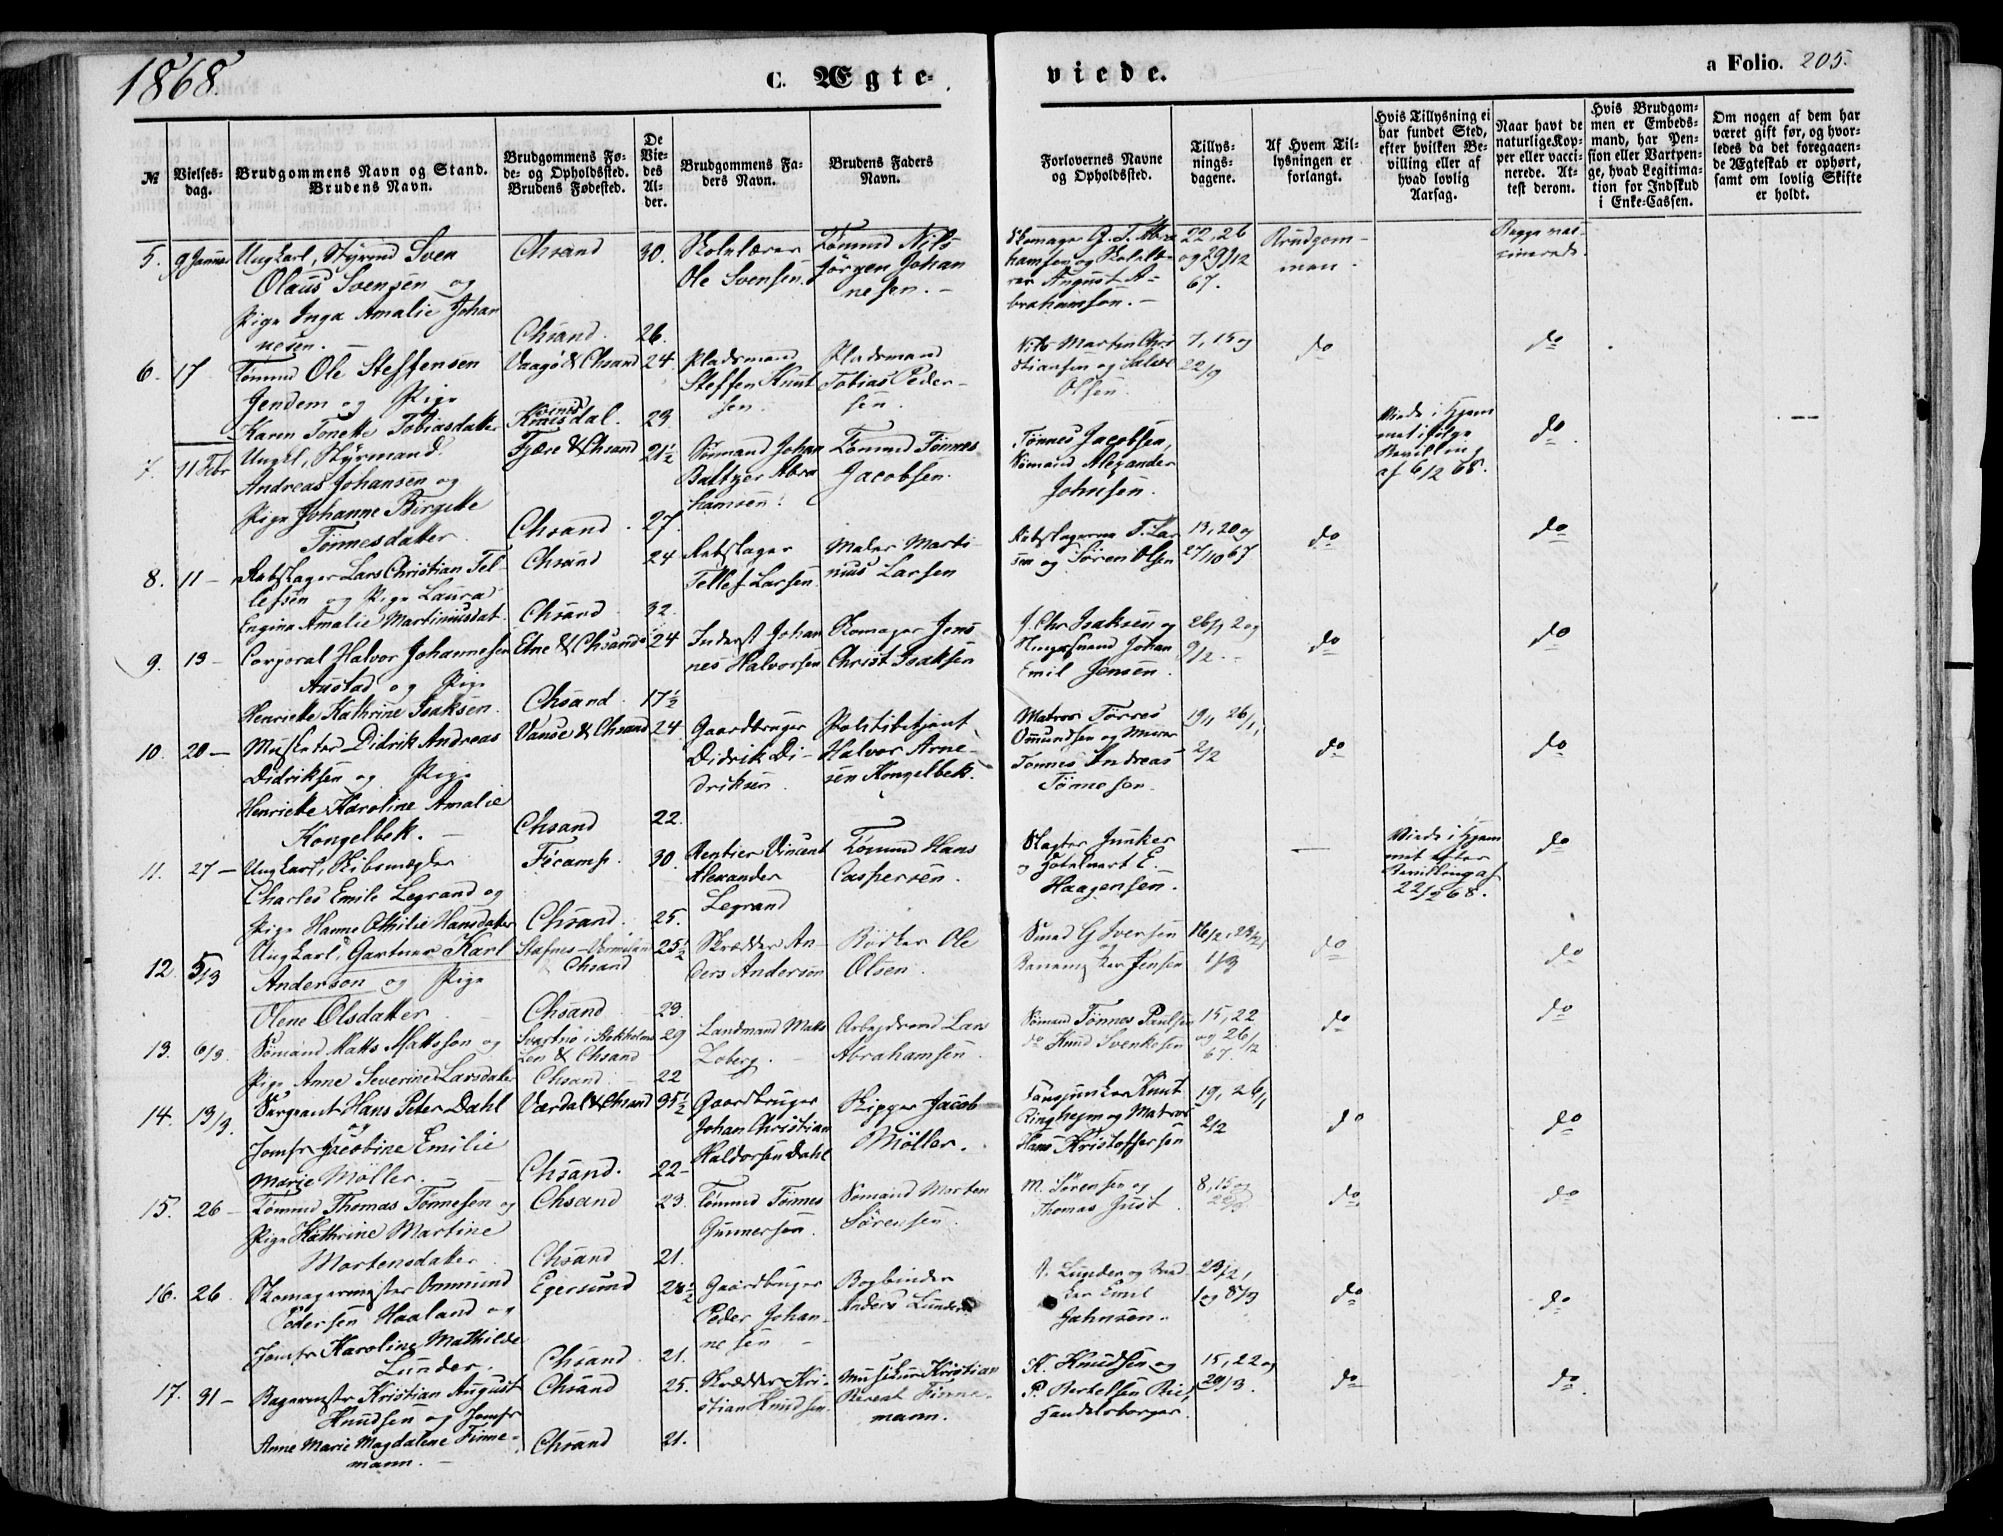 1868.
C. Ægteviede.
a Folio. 205.
№
Vielsesdag.
Brudgommens Navn og Stand.
Brudens Navn.
Brudgommens Føde- og Opholdssted.
Brudens Fødested.
De Viedes Alder.
Brudgommens Faders Navn.
Brudens Faders Navn.
Forlovernes Navne og Opholdssted.
Tillysningsdagene.
Af Hvem Tillysningen er forlangt.
Hvis Tillysning ei har fundet Sted, efter hvilken Bevilling eller af hvad lovlig Aarsag.
Naar havt de naturlige Kopper eller vaccinerede. Attest derom.
Hvis Brudgommen er Embedsmand, har Pension eller Vartpenge, hvad Legitimation for Indskud i Enke-Cassen.
Om nogen af dem har været gift før, og hvorledes da det foregaaende Ægteskab er ophørt, samt om lovlig Skifte er holdt.
5. 9 Januar Ungkarl, Styrmd Sven Chsand 30. Skolelærer Tømmd Nils 22, 26 Brudgom- Begge vac-
Olaus Svensen og Ole Svensen. Jørgen Johan og 29/12 men. cinerede.
Pige Inga Amalie Johan nesen. 67.
nesen. Chsand. 26.
6. 17 Tømmd Ole Steffensen Vaagø & Chsand 24 Pladsmand Pladsmand Nils Martin Chri 7, 15 og do do
Jendem og Pige Steffen Knut Tobias Peder- stiansen og Salve 22/9
Karen Tonette Tobiasdatter Kvinisdal. 23 sen. sen. Olsen.
7. 11 Febr Ungkl, Styrmand Fjære & Chsand 21½ Sømand Johan Tømmd Tønnes Tønnes Jacobsen, Viede i Hjem do
Andreas Johansen og Baltzer Abra Jacobsen. Sømand Alexander met ifølge
Pige Johanne Birgitte hamsen. Johnsen. Bevilling
Tønnesdatter. Chsand. 27. af 6/2 68.
8. 11 - Rebslager Lars Christian Tel- Chsand 24 Rebslager Maler Marti- Rebslagerne T. Lar 13, 20 og do do
lefsen og Pige Laura Tellef Larsen nius Larsen sen og Søren Olsen 27/10 67
Engina Amalie Martiniusdat. Chsand 32.
9. 13 - Corporal Halvor Johannesen Etne & Chsand 24 Inderst Johan Skomager Jens J. Chr Isaksen og 26/1 2 og do do
Austad og Pige nes Halvorsen Christ Isaksen Johan 9/2
Henriette Kathrine Isaksen. Chsand. 17½ Emil Jensen.
10. 20 - Didrik Andreas Vanse & Chsand 24 Gaardbruger Politibetjent Matros Tørres 19/1 26/1, do do
Didriksen og Pige Didrik Di- Halvor Arne- Omundsen og Murer 2/2
Henriette Karoline Amalie driksen. sen Kongelbek. Tønnes Andreas
Kongelbek. Chsand 22. Tønnesen.
11. 27 - Ungkarl, Skibsmægler Fécamp. 30. Rentier Vincent Tømmd Hans Slagter Junker - Viede i Hjem do
Charles Emile Legrand og Alexander Caspersen. og Hotelvert E. met efter
Pige Hanne Othilie Hansdatter Chsand. 25. Legrand Haagensen. Bevilling af
22/2 68.
12. 5/3 Ungkarl, Gartner Karl Stafnes-Vermeland 25½ Skrædder An- Bødker Ole Smed G Iversen 16/2, 23/2, do do
Anderson og Pige Chsand ders Anderson Olsen. og Jensen 1/3
Olene Olsdatter. Chsand 23.
13. 6/3 Sømand Mats Matsson og Svartnø i Stokholms 29 Landmand Mats Arbejdsmd Lars Sømand Tønnes Paulsen 15, 22 do do
Len & Chsand Loberg. Abrahamsen. do Knud Svenkesen og 26/12
Pige Anne Severine Larsdatter Chsand 22 67.
14. 13/3 Sergeant Hans Peter Dahl Værdal & Chsand 35½ Gaardbruger Skipper Jacob Fanejunker Knut 19, 26/1 do do
og Johan Christian Møller. Ringhejm og Matros 2/2
Jomfr Jacobine Emilie Haldorsen Dahl Hans Kristoffersen
Marie Møller. Chsand. 22
15. 26 - Tømmd Thomas Tønnesen og Chsand 23. Tømmd Tønnes Sømand Morten M. Sørensen og 8, 15 og do do
Pige Kathrine Martine Gunnersen. Sørensen. Thomas Just.
Mortensdatter. Chsand 21.
16. 26 Skomagermester Ommund Egersund 28½ Gaardbruger Bogbinder A. Lunder og 23/2, do do
Pedersen Haaland og Peder Johan- Anders Lunder Emil 1 og 8/3
Jomfr Karoline Mathilde nesen Jahnsen.
Lunder. Chsand. 21.
17. 31 - Bagermestr Kristian August Chsand 25. Skrædder Kri- Musikus Kristian K. Knudsen og 15, 22 og do do
Knudsen og Jomfr stian Knudsen Berent Finne- P. Bertelsen 29/3.
Anne Marie Magdalene Finne- Chsand 21. mann. Handelsborger.
mann.